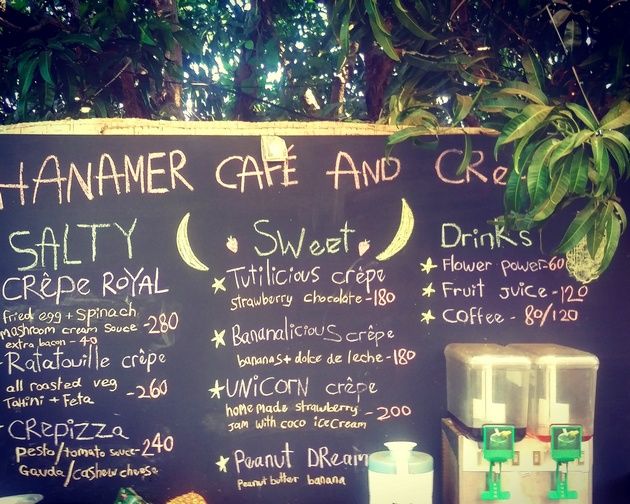 HANAMER CAFÉ AND CRe
SALTY
CRêpe RoYAL
fried egg + spinach
mushroom cream sauce -280
extra bacon - 40
Ratatouille crêpe
all roasted veg
Tahini + Feta -260
CRepizza
Pesto/tomato sauce -240
Gauda/cashew cheese
Sweet
Tutilicious crêpe
strawberry chocolate -180
Bananalicious crêpe
bananas + dolce de leche -180
UNiCORN crêpe
home made strawberry
jam with coco iceCream -200
Peanut DReam
Peanut butter banana
Drinks
Flower power -60
Fruit juice - 120
Coffee - 80/120